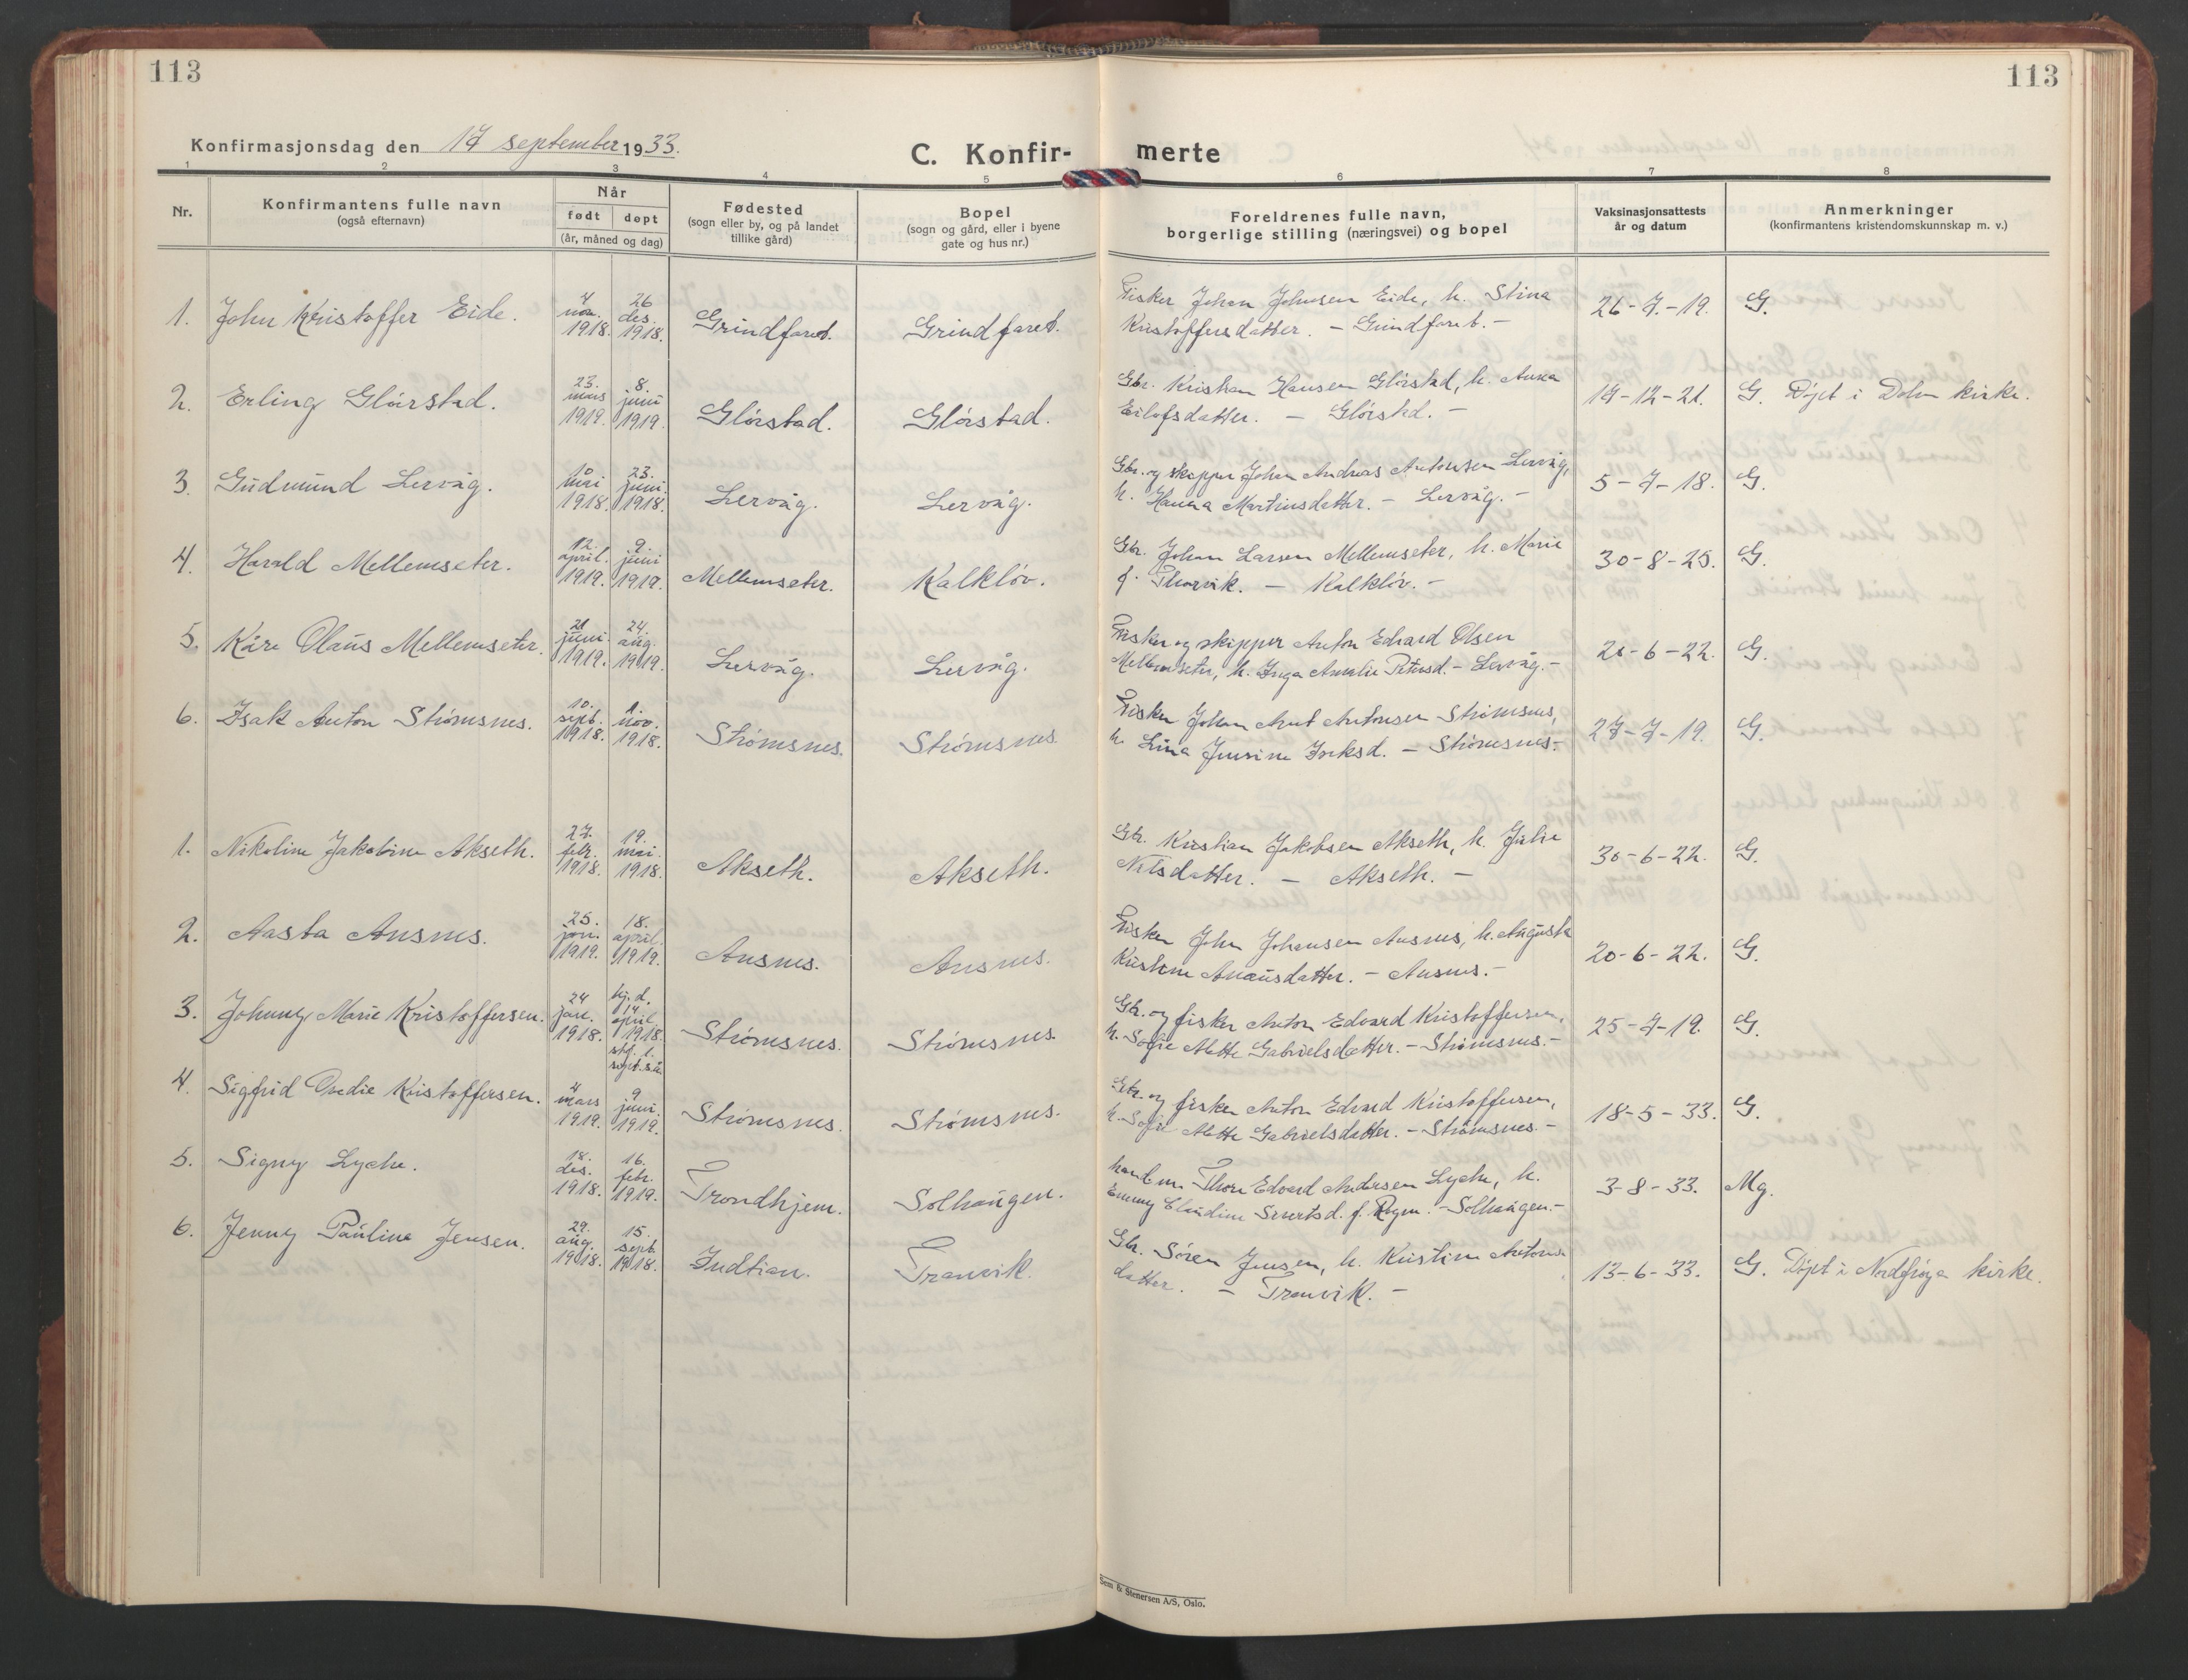 113
113
Konfirmasjonsdag den 17 september 1933.
C. Konfir- merte
1 2 3 4 5 6 7 8
Nr.
Konfirmantens fulle navn
(også efternavn)
Når
født døpt
(år, måned og dag)
Fødested
(sogn eller by, og på landet
tillike gård)
Bopel
(sogn og gård, eller i byene
gate og hus nr.)
Foreldrenes fulle navn,
borgerlige stilling (næringsvei) og bopel
Vaksinasjonsattests
år og datum
Anmerkninger
(konfirmantens kristendomskunnskap m. v.)
1. John Kristoffer Eide.
4 nov. 1918.
26 des. 1918.
Grindfaret.
Grindfaret.
Fisker Johan Johnsen Eide, h. Stina
Kristoffersdatter. – Grindfaret. –
26-7-19.
G.
2. Erling Glörstad.
23. mars 1919.
8. juni 1919.
Glörstad.
Glörstad.
Gbr. Kristian Hansen Glörstad, h. Anna
Eilefsdatter. – Glörstad. –
14-12-21.
G. Döpt i Dolm kirke.
3. Gudmund Lervåg.
10 mai 1918.
23. juni 1918.
Lervåg.
Lervåg.
Gbr. og skipper Johan Andreas Antonsen Lervåg,
h. Hanna Martinusdatter. – Lervåg. –
5-7-18.
G.
4. Harald Mellemseter.
12. april. 1919.
9. juni 1919.
Mellemseter.
Kalklöv.
Gbr. Johan Larsen Mellemseter, h. Marie
f. Thorvik. – Kalklöv. –
30-8-25.
G.
5. Kåre Olaus Mellemseter.
21 juni. 1919.
24. aug. 1919.
Lervåg.
Lervåg.
Fisker og skipper Anton Edvard Olsen
Mellemseter, h. Inga Amalie Petersd. – Lervåg. –
20-6-22.
G.
6. Isak Anton Strömsnes.
10. sept. 1918.
1. nov. 1918.
Strömsnes.
Strömsnes.
Fisker Johan Arnt Antonsen Strömsnes,
h. Lina Jensine Isaksd. – Strömsnes. –
27-7-19.
G.
1. Nikoline Jakobine Akseth.
27. febr. 1918.
19. mai. 1918.
Akseth.
Akseth.
Gbr. Kristian Jakobsen Akseth, h. Julie
Nilsdatter. – Akseth. –
30-6-22.
G.
2. Aasta Ansnes.
25. jan. 1919.
18. april. 1919.
Ansnes.
Ansnes.
Fisker John Johansen Ansnes, h. Augusta
Kristine datter. – Ansnes. –
20-6-22.
G.
3. Johnny Marie Kristoffersen.
24 jan. 1918.
hj. d. 14 april 1918. stf. i. sept. s.å.
Strömsnes.
Strömsnes.
Gbr. og fisker Anton Edvard Kristoffersen,
h. Sofie Alette Gabrielsdatter. – Strömsnes. –
25-7-19.
G.
4. Sigfrid Ovedie Kristoffersen.
4 mars 1919.
9 juni. 1919.
Strömsnes.
Strömsnes.
Gbr. og fisker Anton Edvard Kristoffersen,
h. Sofie Alette Gabrielsdatter. – Strömsnes. –
18-5-33.
G.
5. Signy Lyche.
18. des. 1918.
16. febr. 1919.
Trondhjem.
Solhaugen.
Handelsm. Thore Edvard Andersen Lyche, h.
Emmy Claudine Sivertsd. f. – Solhaugen. –
3-8-33.
Mg.
6. Jenny Pauline Jensen.
29. aug. 1918.
15. sept. 1918.
Indtian.
Tranvik.
Gbr. Sören Jensen, h. Kristine Antons-
datter. – Tranvik. –
13-6-33.
G. Döpt i Nordfröya kirke.
Sem & Stenersen A/S, Oslo.